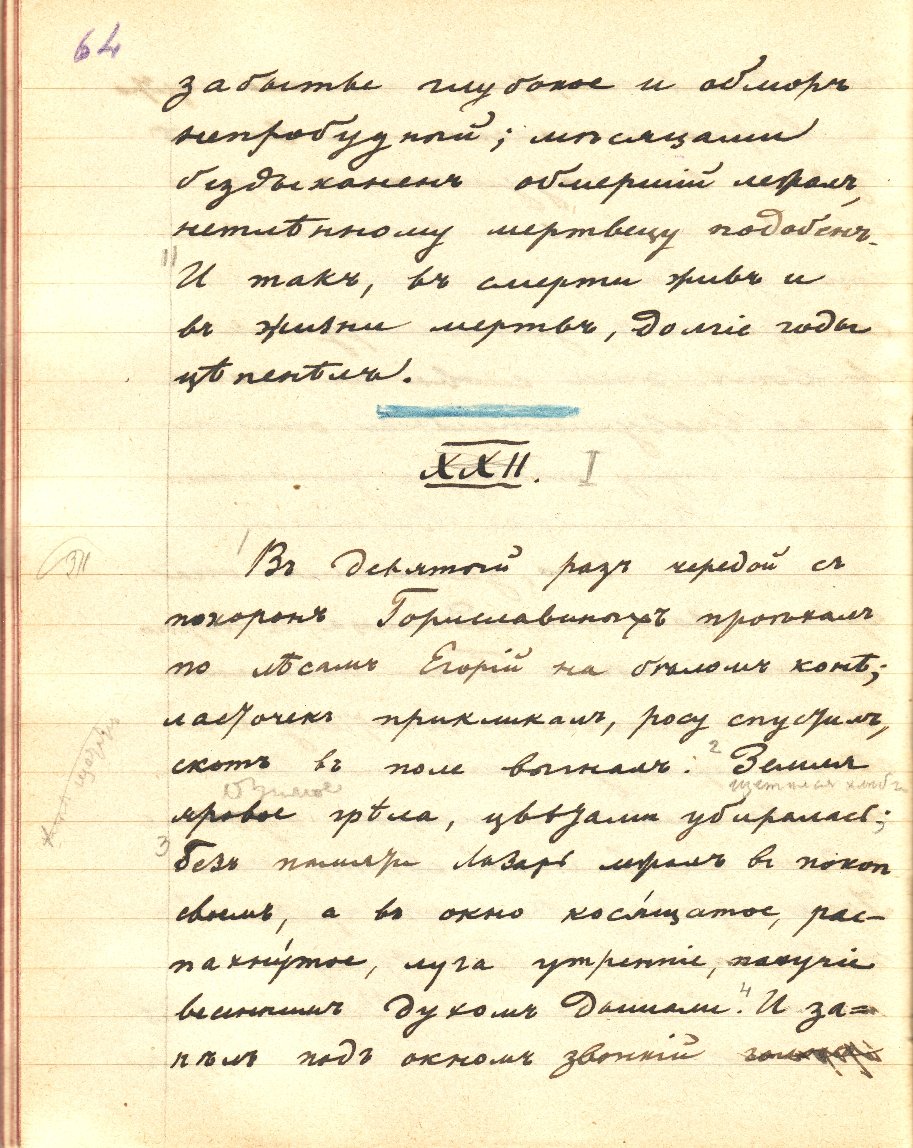 64
забытье глубокое и обморъ
непробудный; мѣсяцами
бездыханенъ обмершій лежалъ,
нетлѣнному мертвецу подобенъ.
11
И такъ, въ смерти живъ и
въ жизни мертвъ, долгіе годы
цѣпенѣлъ.
XXII. I
1
Въ девятый разъ чередой съ
похоронъ Гориславиныхъ проѣхалъ
по лѣсамъ Егорій на бѣломъ конѣ;
ласточекъ прикликалъ, росу спустилъ,
скотъ въ поле выгналъ. 2 Земля
озимое
яровое грѣла, цвѣтами убиралась;
3
безъ памяти Лазарь лежалъ въ покоѣ
своемъ, а въ окно косящатое, рас-
пахнутое, луга утренніе, пахучіе
весеннимъ духомъ дышали. 4 И за=
пѣлъ подъ окномъ звонкій